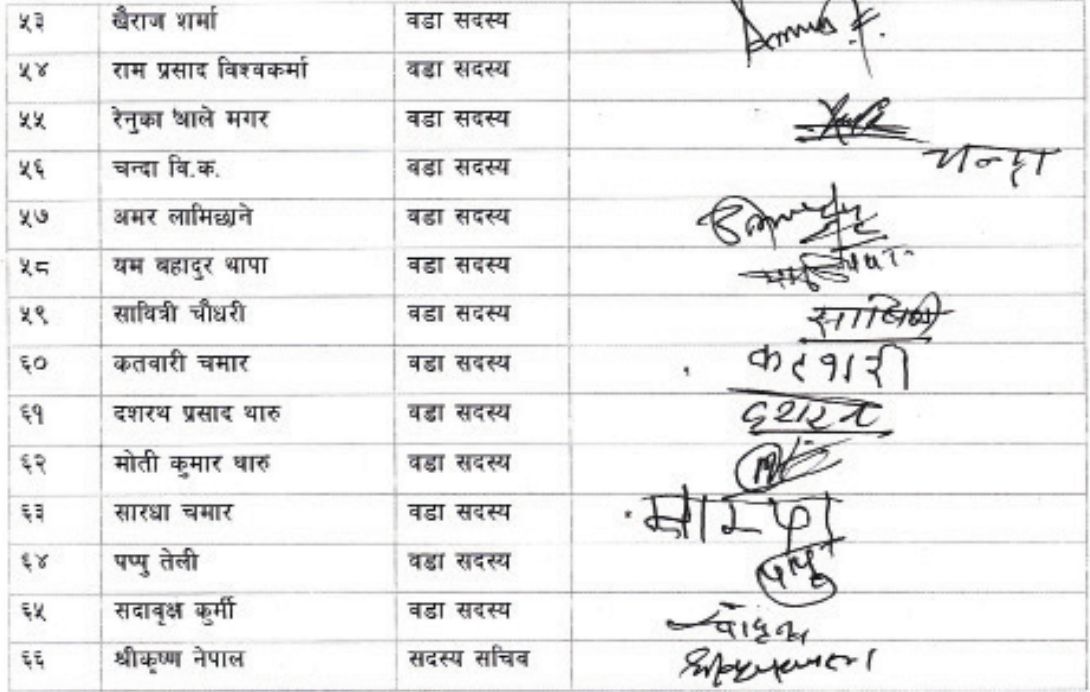 ५३ खैराज शर्मा वडा सदस्य
५४ राम प्रसाद विश्वकर्मा वडा सदस्य
५५ रेनुका थाले मगर वडा सदस्य
५६ चन्दा वि.क. वडा सदस्य चन्दा
५७ अमर लामिछाने वडा सदस्य
५८ यम बहादुर थापा वडा सदस्य
५९ सावित्री चौधरी वडा सदस्य सावित्री
६० कतवारी चमार वडा सदस्य कतवारी
६१ दशरथ प्रसाद थारु वडा सदस्य दशरथ
६२ मोती कुमार थारु वडा सदस्य
६३ सारधा चमार वडा सदस्य
६४ पप्पु तेली वडा सदस्य
६५ सदावृक्ष कुर्मी वडा सदस्य
६६ श्रीकृष्ण नेपाल सदस्य सचिव